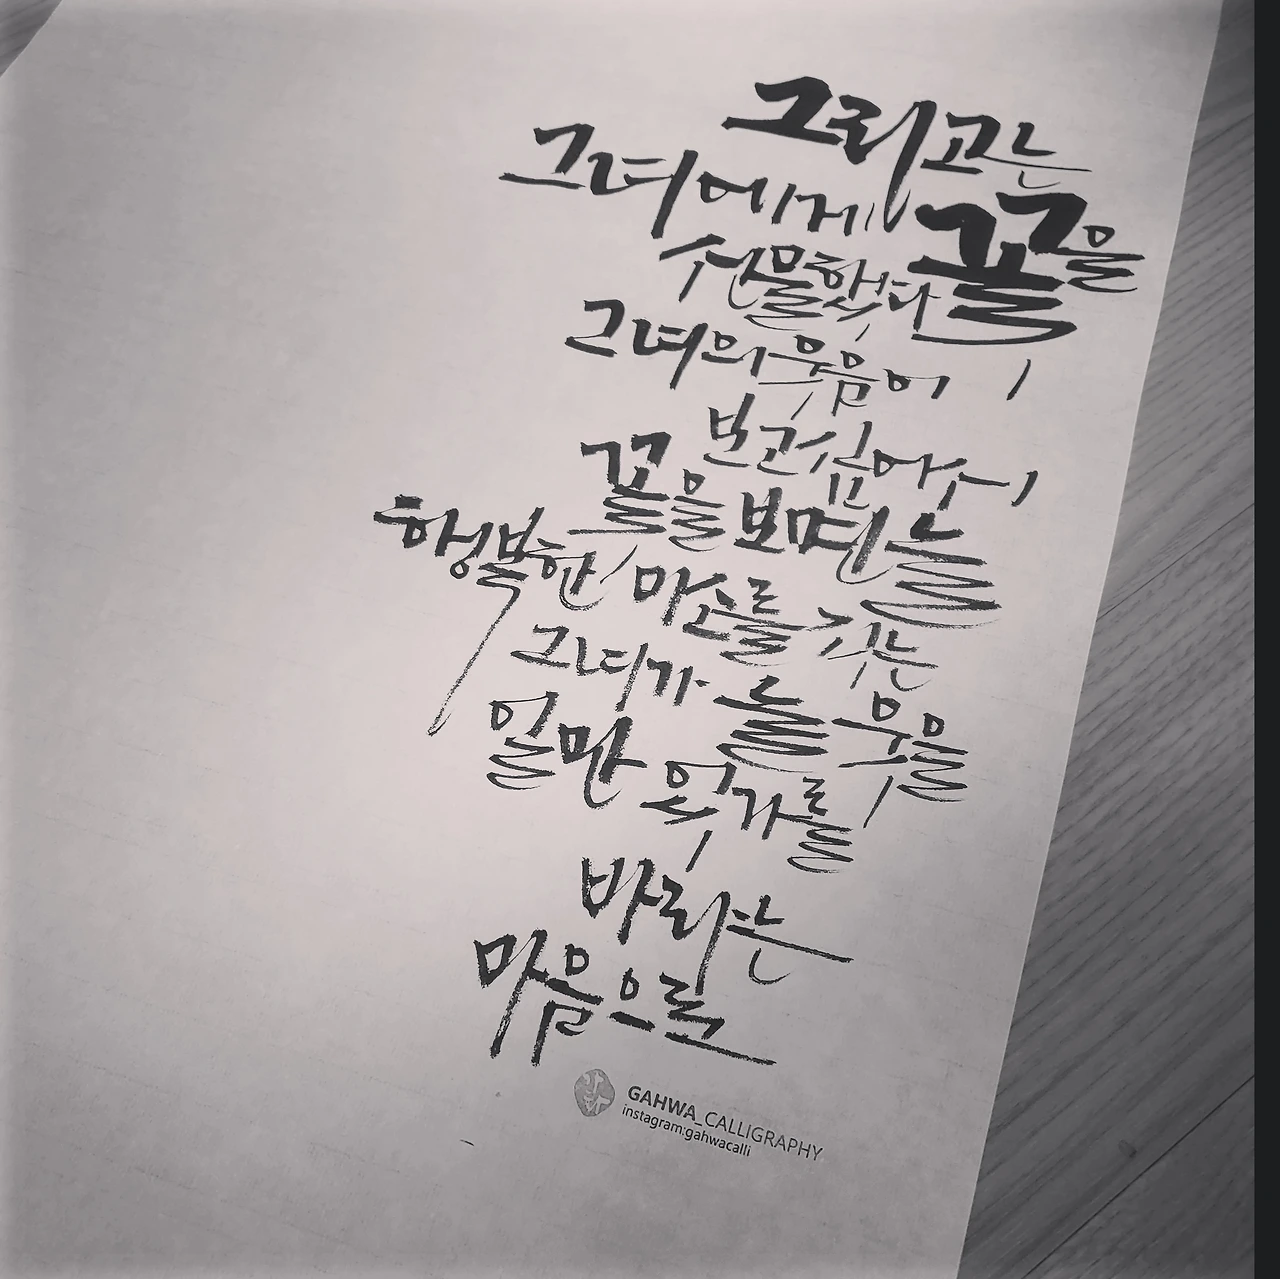 그리고는
그녀에게 꽃을
선물했다
그녀의 웃음이
보고싶어서
꽃을 보면 늘
행복한 미소를 짓는
그녀가 늘 웃을
일만 있기를
바라는
마음으로
GAHWA_CALLIGRAPHY
instagram:gahwacalli